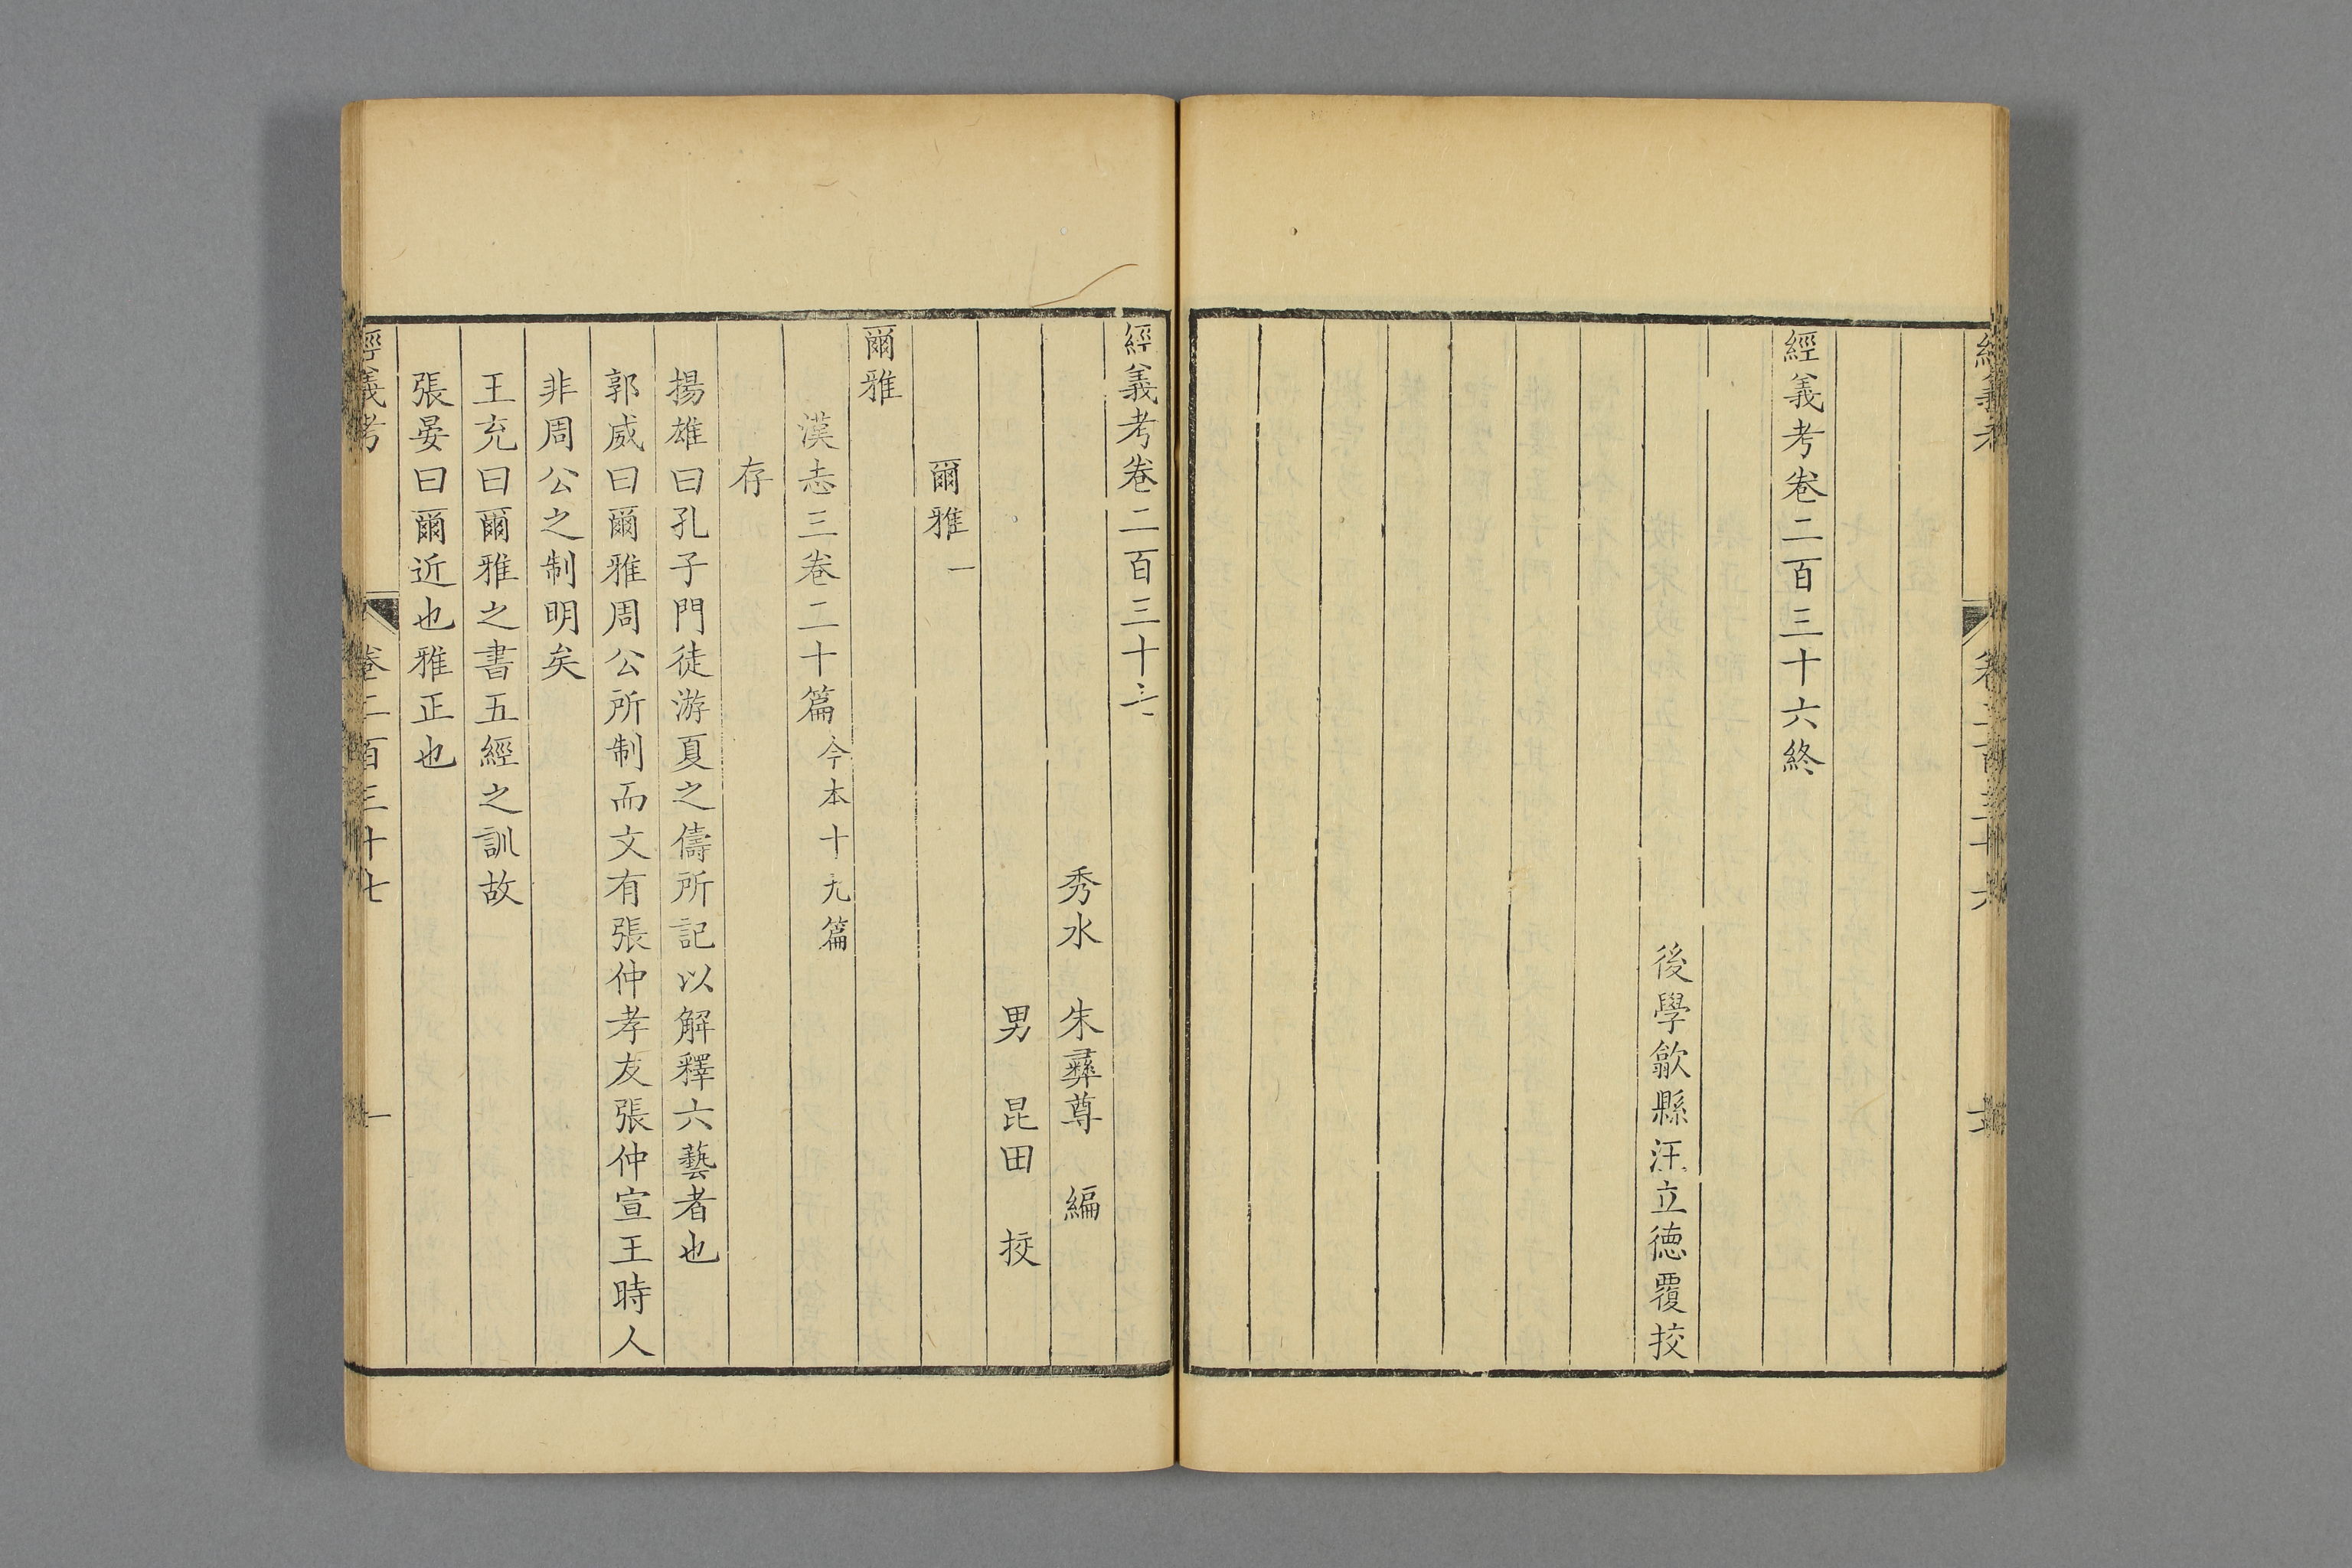 經義考
卷二百三十六
經義考卷二百三十六終
後學歙縣汪立德覆挍
經義考卷二百三十
秀水 朱彝尊 編
男 昆田 挍
爾雅一
爾雅
漢志三卷二十篇今本十九篇
存
揚雄曰孔子門徒游夏之儔所記以解釋六藝者也
郭威曰爾雅周公所制而文有張仲孝友張仲宣王時人
非周公之制明矣
王充曰爾雅之書五經之訓故
張晏曰爾近也雅正也
經義考
卷二百三十七
一